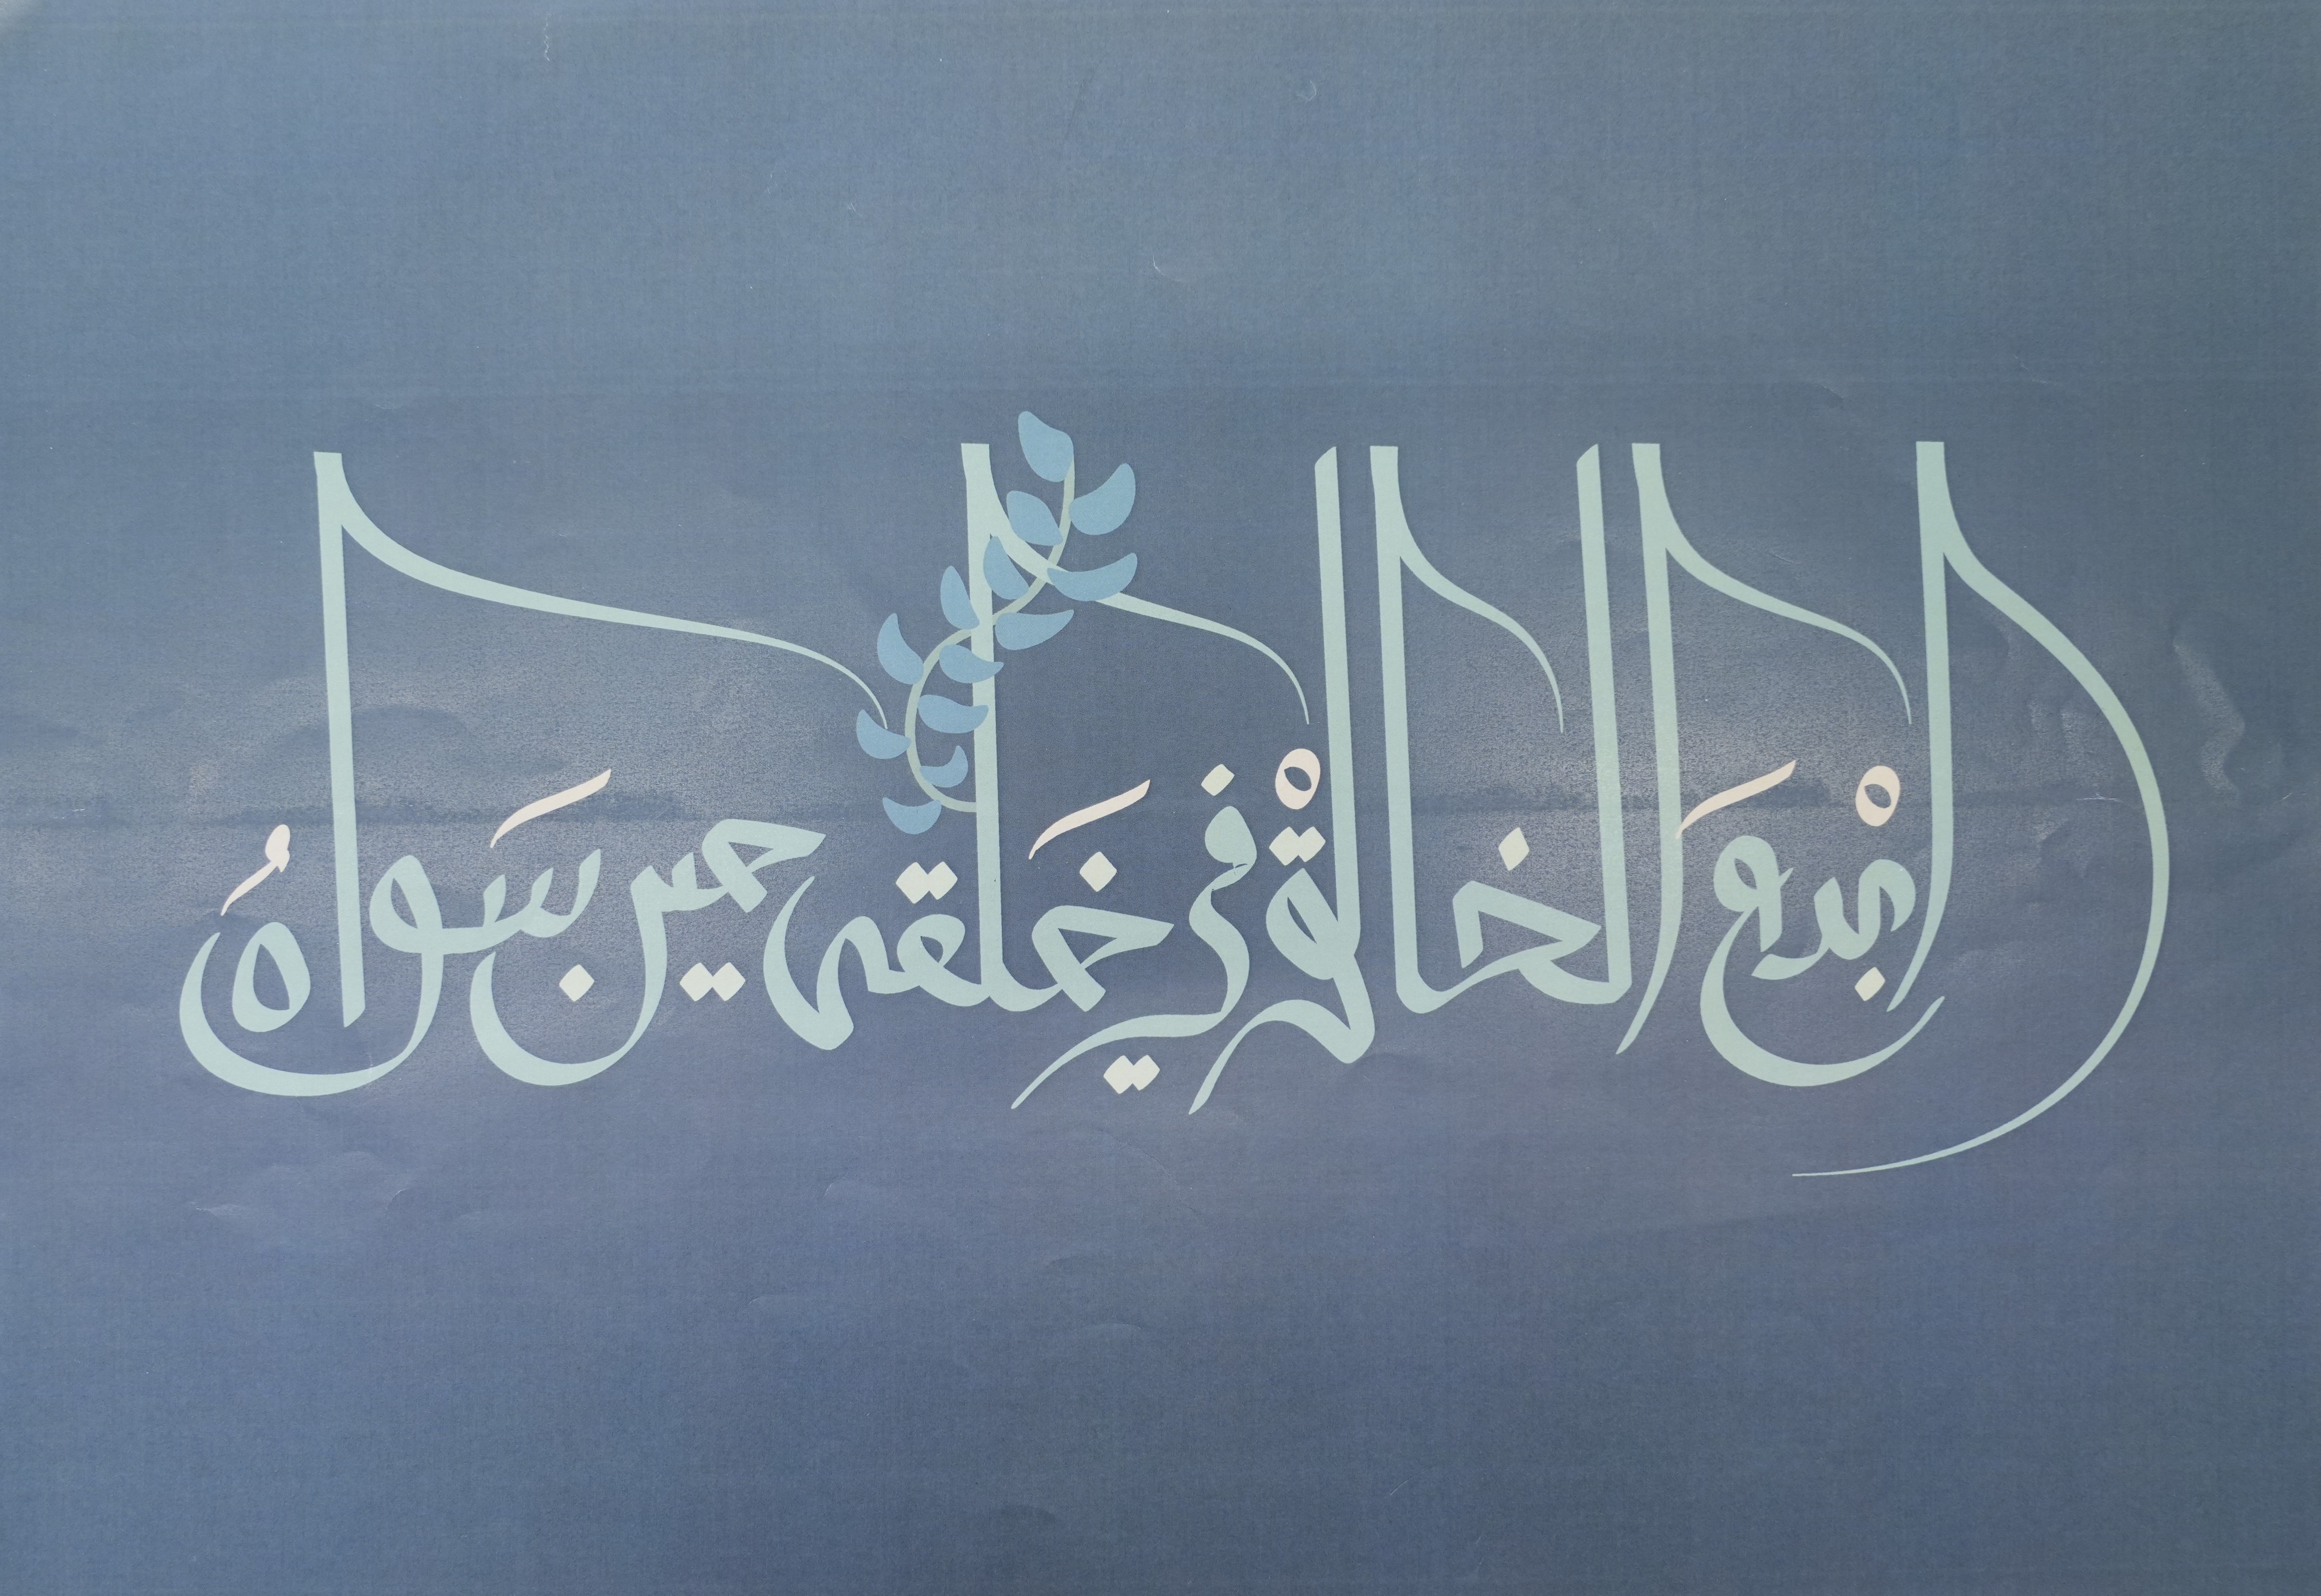 ابْدَع الخالقْ في خَلقه حين سَواهُ